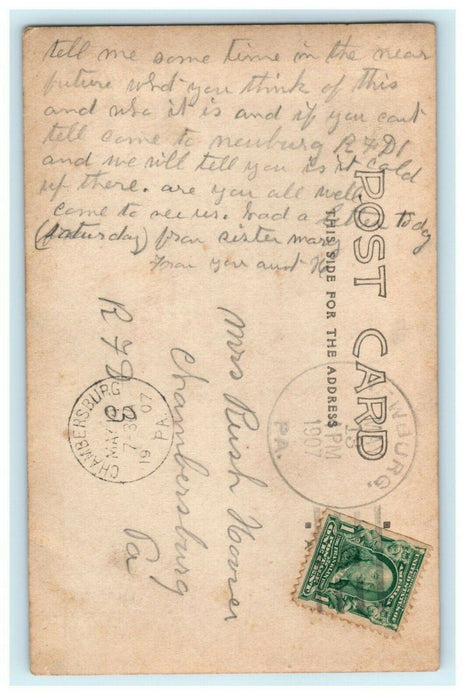 tell me some time in the near
future what you think of this
and who it is and if you cant
tell come to newburg R F D 1
and we will tell you is it cold
up there. are you all well.
come to see us. had a letter to day
(saturday) from sister mary
from your aunt
POST CARD
THIS SIDE FOR THE ADDRESS
Mrs Rush
Chambersburg
R F D
Pa
CHAMBERSBURG
MAY
7-
1907
PA.
BURG.
PM
1907
PA.